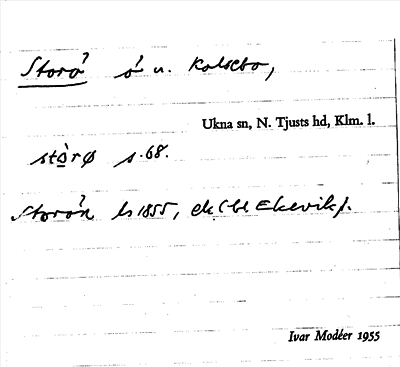 Storö ö u. Kolsebo,
Ukna sn, N. Tjusts hd, Klm. l.
stòrø s. 68.
Storön ls 1855, ek (bl Ekevik).
Ivar Modéer 1955